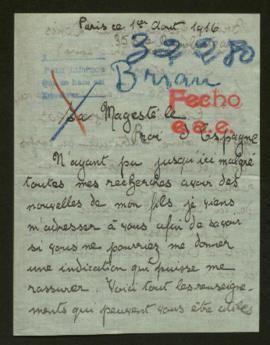 Paris ce 1er Aout 1916
32280
Brian
Fecho
e.e.e.
Sa Magesté le
Roi d'Espagne
N'ayant pu jusqu'ici malgré
toutes mes recherches avoir des
nouvelles de mon fils je viens
m'adresser à vous afin de savoir
si vous ne pourriez me donner
une indication qui puisse me
rassurer. Voici tout les renseigne-
ments qui peuvent vous être utiles